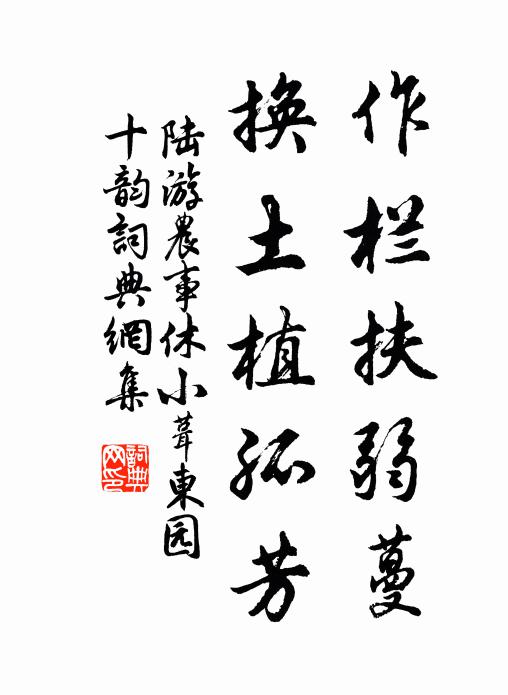 作栏扶弱蔓
换土植孤芳
陆游農事休小葺東园
十韵詞典網集
詞典
网印